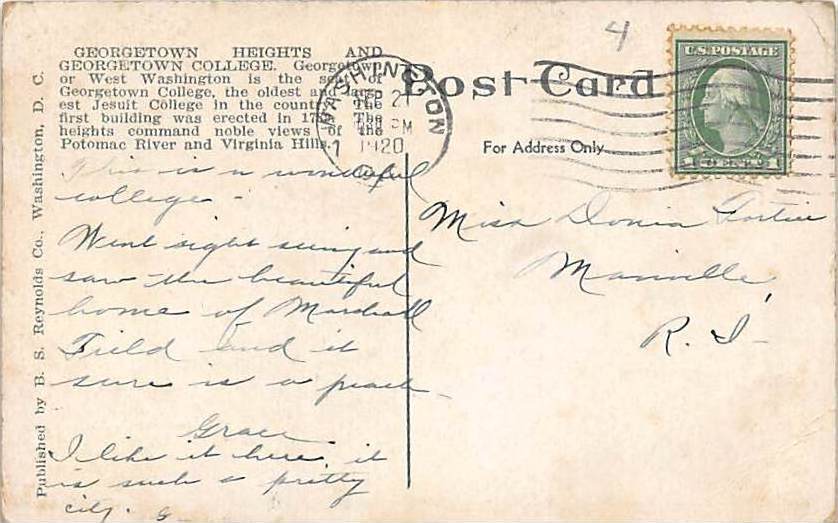 GEORGETOWN HEIGHTS AND
GEORGETOWN COLLEGE. Georgetown
or West Washington is the seat of
Georgetown College, the oldest and larg-
est Jesuit College in the country. The
first building was erected in 17 The
heights command noble views of the
Potomac River and Virginia Hills.
Published by B. S. Reynolds Co., Washington, D. C.
This is a wonderful
college -
Went sight seeing and
saw the beautiful
home of Marshall
Field and it
sure is a peach -
Grace
I like it here it
is such a pretty
city. G
4
Post Card
For Address Only.
WASHINGTON
2
PM
1920
U.S. POSTAGE
1 CENT 1
Miss Donia Fortier
Manville,
R. I -